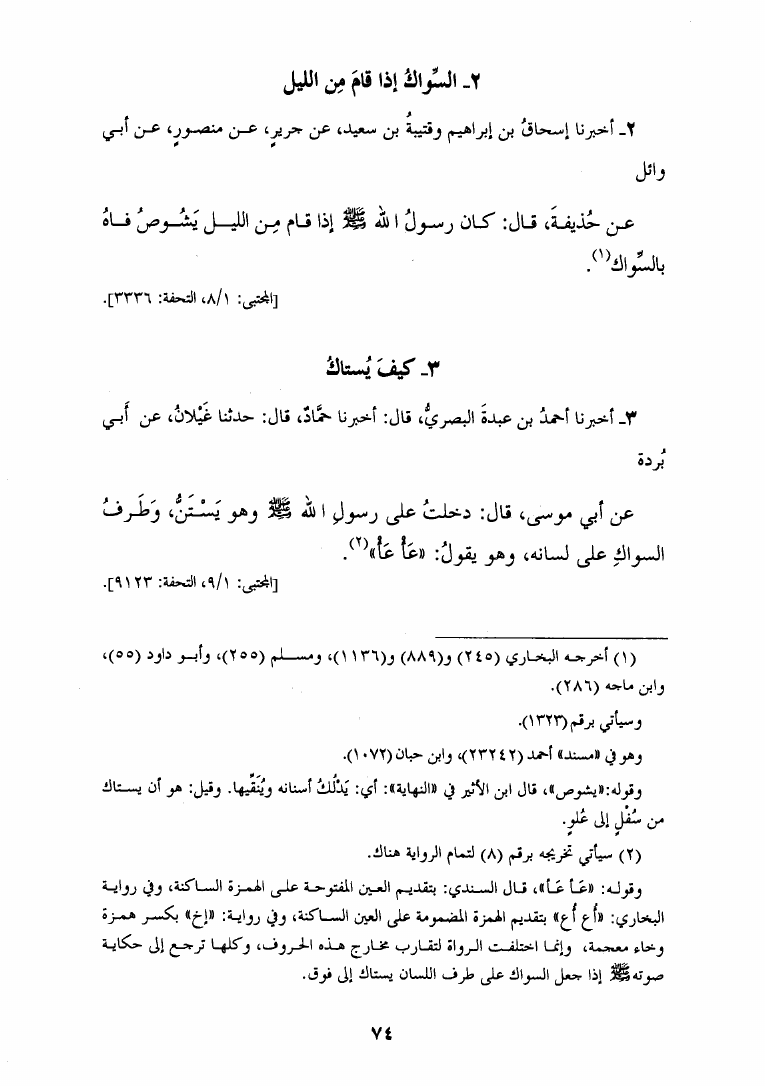 ٢ـ السِّواكُ إذا قامَ مِن الليل
٢ـ أخبرنا إسحاقُ بن إبراهيم وقتيبةُ بن سعيد، عن جريرٍ، عـن منصـورٍ، عـن أبـي
وائل
عـن حُذيفـةَ، قـال: كـان رسـولُ الله ﷺ إذا قـام مِـن الليـل يَشُـوصُ فـاهُ
بالسِّواك(١).
[المجتبى: ٨/١، التحفة: ٣٣٣٦].
٣ـ كيفَ يُستاكُ
٣ـ أخبرنا أحمدُ بن عبدةَ البصريُّ، قال: أخبرنا حمَّادٌ، قال: حدثنا غَيْلانُ، عن أَبـي
بُردة
عن أبي موسى، قال: دخلتُ على رسولِ الله ﷺ وهو يَسْتَنُّ، وَطَرفُ
السواكِ على لسانه، وهو يقولُ: «عَأْ عَأْ»(٢).
[المجتبى: ٩/١، التحفة: ٩١٢٣].
(١) أخرجـه البخـاري (٢٤٥) و(٨٨٩) و(١١٣٦)، ومسـلم (٢٥٥)، وأبـو داود (٥٥)،
وابن ماجه (٢٨٦).
وسيأتي برقم (١٣٢٣).
وهو في «مسند» أحمد (٢٣٢٤٢)، وابن حبان (١٠٧٢).
وقوله:«يشوص»، قال ابن الأثير في «النهاية»: أي: يَدْلُكُ أسنانه ويُنَقِّيها. وقيل: هو أن يسـتاك
من سُفْلٍ إلى عُلوٍ.
(٢) سيأتي تخريجه برقم (٨) لتمام الرواية هناك.
وقولـه: «عَـأ عَـأ»، قـال السـندي: بتقديـم العـين المفتوحـة علـى الهمـزة السـاكنة، وفي روايـة
البخاري: «أُع أُع» بتقديم الهمزة المضمومة على العين الساكنة، وفي رواية: «إخ» بكسـر همـزة
وخاء معجمة، وإنمـا اختلفـت الـرواة لتقـارب مخـارج هـذه الحـروف، وكلهـا ترجـع إلى حكايـة
صوته ﷺ إذا جعل السواك على طرف اللسان يستاك إلى فوق.
٧٤